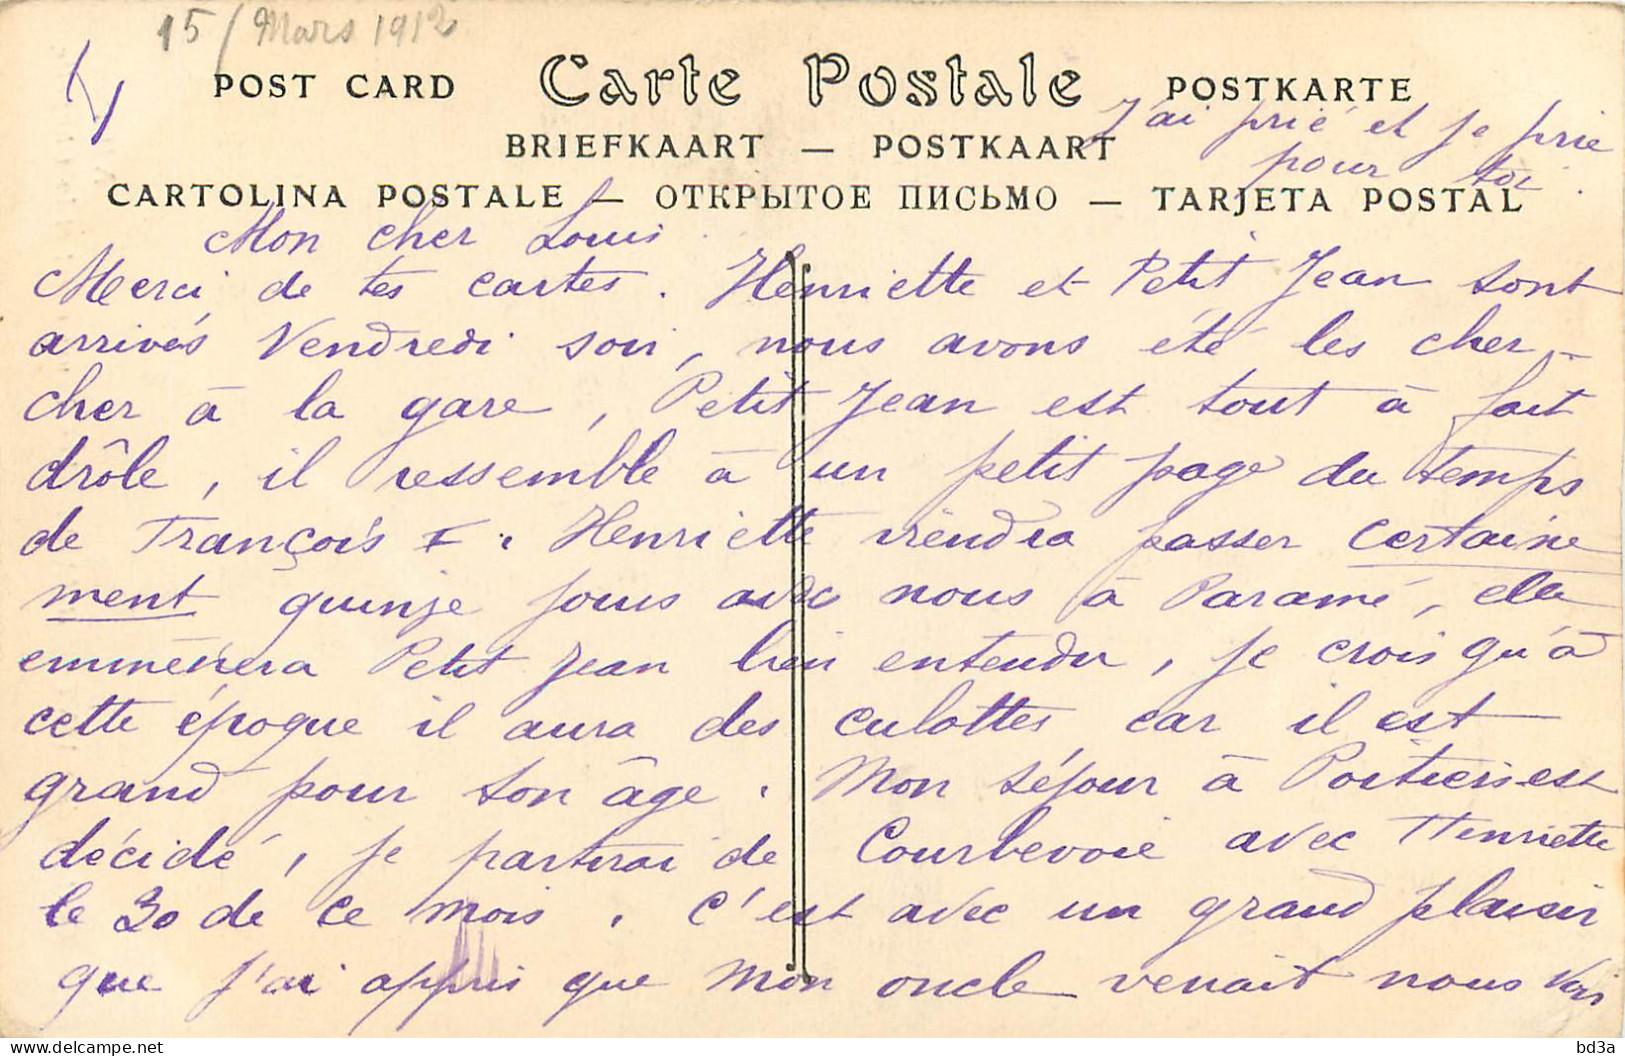 15/Mars 1912
POST CARD Carte Postale POSTKARTE
BRIEFKAART — POSTKAART
CARTOLINA POSTALE — ОТКРЫТОЕ ПИСЬМО — TARJETA POSTAL
J'ai prié et je prie
pour toi.
Mon cher Louis.
Merci de tes cartes. Henriette et Petit Jean sont
arrivés Vendredi soir, nous avons été les cher-
cher à la gare, Petit Jean est tout à fait
drôle, il ressemble à un petit page du temps
de François I. Henriette viendra passer certaine
ment quinze jours avec nous à Paramé, elle
emmènera Petit Jean bien entendu, je crois qu'à
cette époque il aura des culottes car il est
grand pour son âge. Mon séjour à Poitiers est
décidé, je partirai de Courbevoie avec Henriette
le 30 de ce mois. C'est avec un grand plaisir
que j'ai appris que mon oncle venait nous voir
bd3a